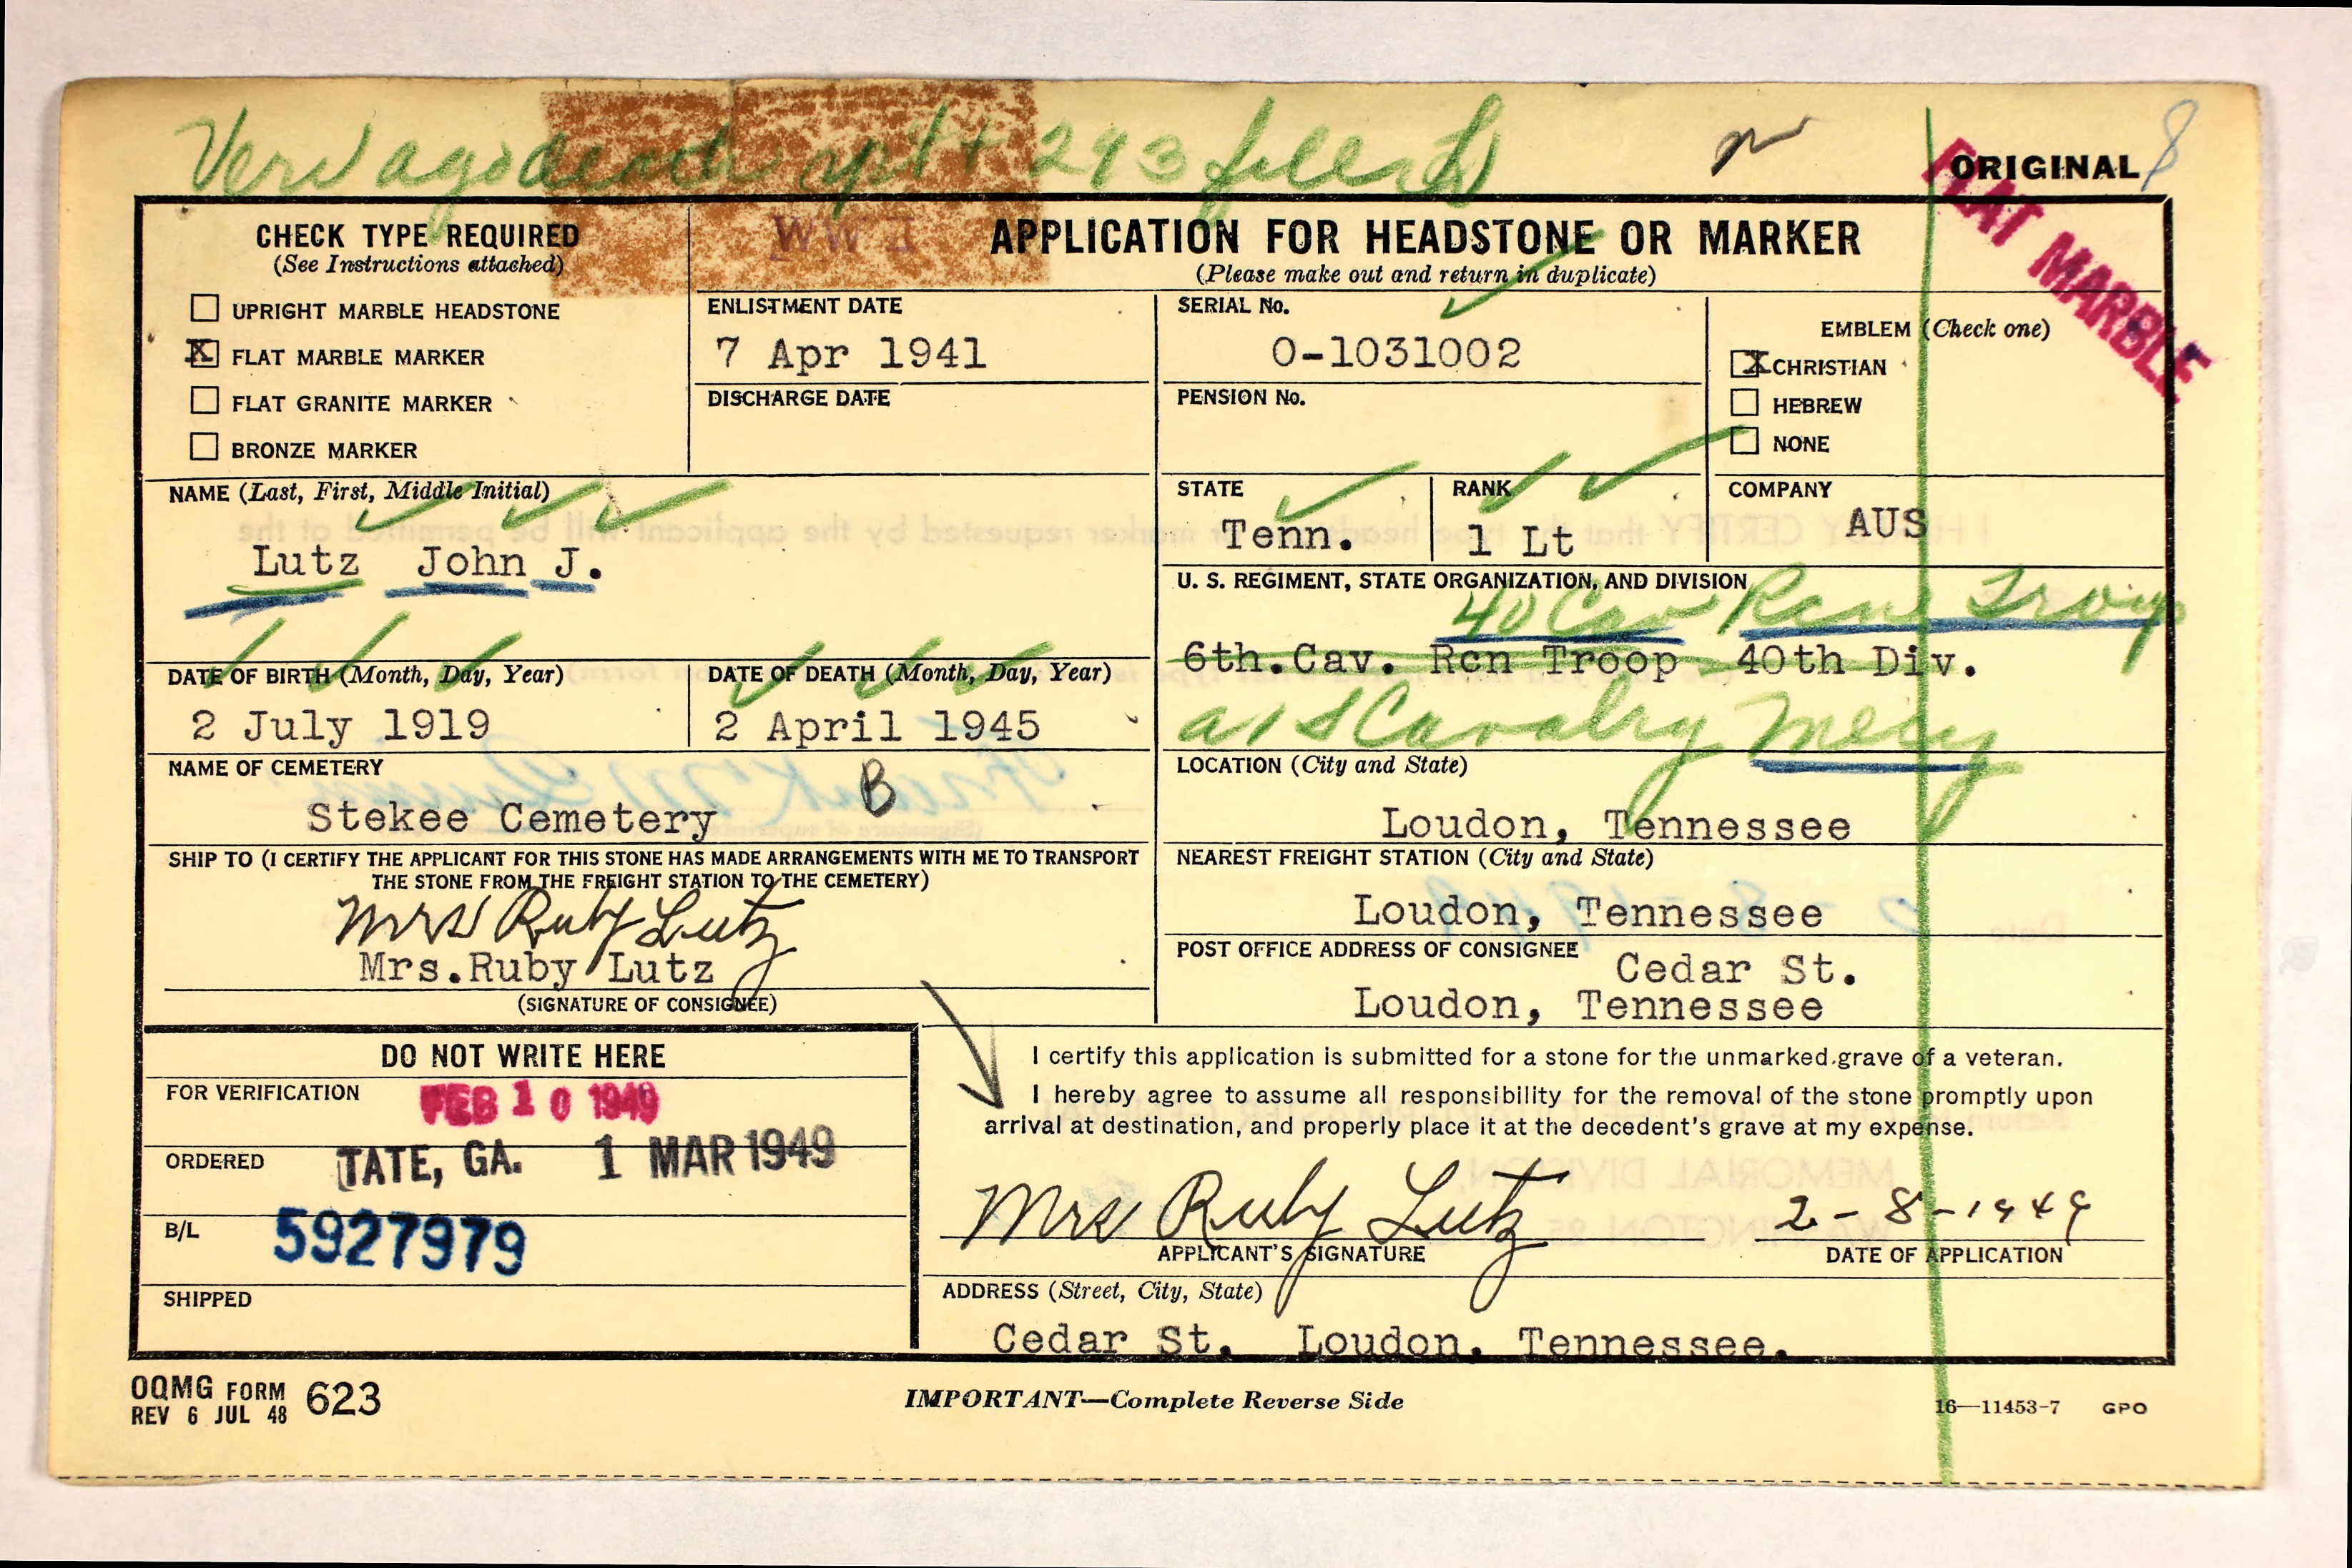 Verif ago death rpt + 293 file
ORIGINAL 8
FLAT MARBLE
CHECK TYPE REQUIRED
(See Instructions attached)
☐ UPRIGHT MARBLE HEADSTONE
☒ FLAT MARBLE MARKER
☐ FLAT GRANITE MARKER
☐ BRONZE MARKER
APPLICATION FOR HEADSTONE OR MARKER
(Please make out and return in duplicate)
ENLISTMENT DATE
7 Apr 1941
DISCHARGE DATE
SERIAL No.
O-1031002
PENSION No.
EMBLEM (Check one)
☒ CHRISTIAN
☐ HEBREW
☐ NONE
NAME (Last, First, Middle Initial)
Lutz John J.
STATE
Tenn.
RANK
1 Lt
COMPANY
AUS
U. S. REGIMENT, STATE ORGANIZATION, AND DIVISION
40 Cav Rcn Troop
6th.Cav. Rcn Troop 40th Div.
Cavalry Mecz
DATE OF BIRTH (Month, Day, Year)
2 July 1919
DATE OF DEATH (Month, Day, Year)
2 April 1945
NAME OF CEMETERY
B
Stekee Cemetery
LOCATION (City and State)
Loudon, Tennessee
SHIP TO (I CERTIFY THE APPLICANT FOR THIS STONE HAS MADE ARRANGEMENTS WITH ME TO TRANSPORT
THE STONE FROM THE FREIGHT STATION TO THE CEMETERY)
Mrs Ruby Lutz
Mrs.Ruby Lutz
(SIGNATURE OF CONSIGNEE)
NEAREST FREIGHT STATION (City and State)
Loudon, Tennessee
POST OFFICE ADDRESS OF CONSIGNEE
Cedar St.
Loudon, Tennessee
DO NOT WRITE HERE
FOR VERIFICATION
FEB 10 1949
ORDERED
TATE, GA. 1 MAR 1949
B/L
5927979
SHIPPED
I certify this application is submitted for a stone for the unmarked grave of a veteran.
I hereby agree to assume all responsibility for the removal of the stone promptly upon
arrival at destination, and properly place it at the decedent's grave at my expense.
Mrs Ruby Lutz 2-8-1949
APPLICANT'S SIGNATURE
DATE OF APPLICATION
ADDRESS (Street, City, State)
Cedar St. Loudon, Tennessee.
OQMG FORM 623
REV 6 JUL 48
IMPORTANT—Complete Reverse Side
16—11453-7 GPO